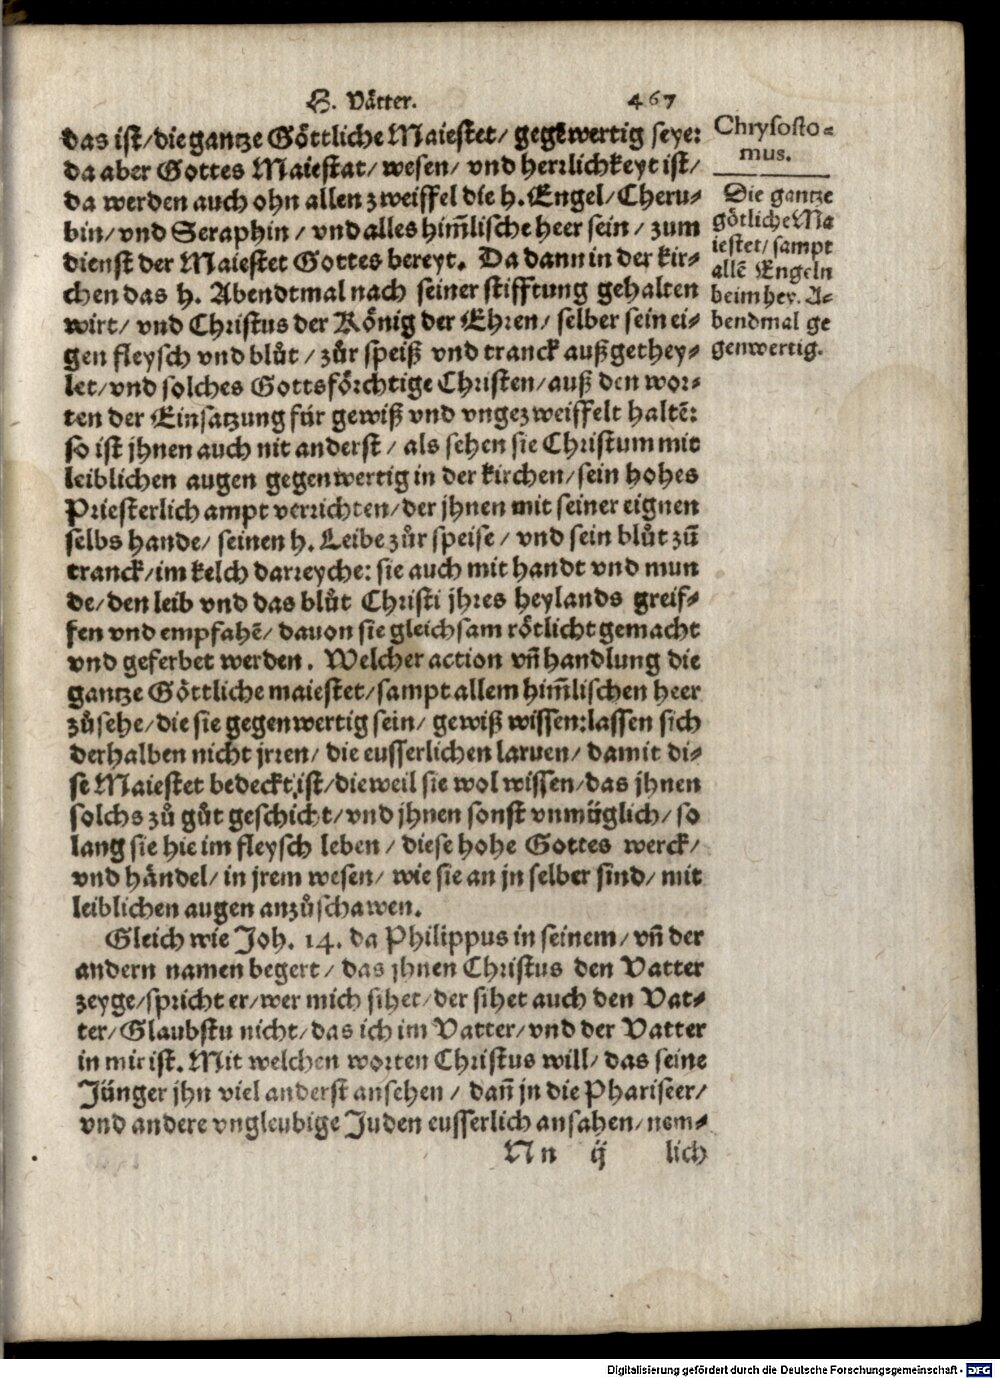 H. Vätter. 467
das ist/die gantze Göttliche Maiestet/ gegēwertig seye:
da aber Gottes Maiestat/ wesen/ vnd herrlichkeyt ist/
da werden auch ohn allen zweiffel die h. Engel/ Cheru-
bin/ vnd Seraphin / vnd alles him̄lische heer sein / zum
dienst der Maiestet Gottes bereyt. Da dann in der kir-
chen das h. Abendtmal nach seiner stifftung gehalten
wirt/ vnd Christus der König der Ehren/ selber sein ei-
gen fleysch vnd blůt / zůr speiß vnd tranck außgethey-
let/ vnd solches Gottsförchtige Christen/ auß den wor-
ten der Einsatzung für gewiß vnd vngezweiffelt haltē:
so ist jhnen auch nit anderst / als sehen sie Christum mit
leiblichen augen gegenwertig in der kirchen/ sein hohes
Priesterlich ampt verrichten/ der jhnen mit seiner eignen
selbs hande/ seinen h. Leibe zůr speise / vnd sein blůt zū
tranck/ im kelch darreyche: sie auch mit handt vnd mun
de/ den leib vnd das blůt Christi jhres heylands greif-
fen vnd empfahē/ dauon sie gleichsam rötlicht gemacht
vnd geferbet werden. Welcher action vn̄ handlung die
gantze Göttliche maiestet/ sampt allem him̄lischen heer
zůsehe/ die sie gegenwertig sein/ gewiß wissen: lassen sich
derhalben nicht jrren/ die eusserlichen laruen/ damit di-
se Maiestet bedeckt ist/ dieweil sie wol wissen/ das jhnen
solchs zů gůt geschicht/ vnd jhnen sonst vnmüglich/ so
lang sie hie im fleysch leben / diese hohe Gottes werck/
vnd händel/ in jrem wesen/ wie sie an jn selber sind/ mit
leiblichen augen anzůschawen.
Gleich wie Joh. 14. da Philippus in seinem/ vn̄ der
andern namen begert/ das jhnen Christus den Vatter
zeyge/ spricht er/ wer mich sihet/ der sihet auch den Vat-
ter/ Glaubstu nicht/ das ich im Vatter/ vnd der Vatter
in mir ist. Mit welchen worten Christus will/ das seine
Jünger jhn viel anderst ansehen / dan̄ jn die Phariseer/
vnd andere vngleubige Juden eusserlich ansahen/ nem-
Nn ij lich
Chrysosto-
mus.
Die gantze
götliche Ma
iestet/ sampt
allē Engeln
beim hey. A-
bendmal ge
genwertig.
Digitalisierung gefördert durch die Deutsche Forschungsgemeinschaft - DFG